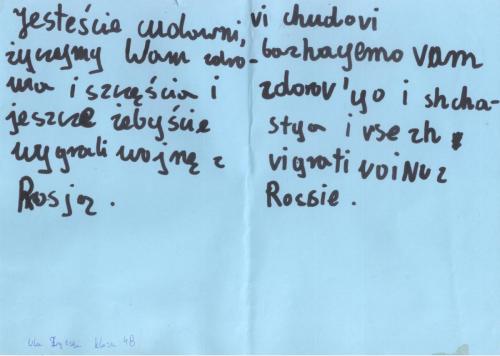 Jesteście cudowni,
życzymy Wam zdro-
wia i szczęścia i
jeszcze żebyście
wygrali wojnę z
Rosją.
vi chudovi
bazhayemo vam
zdorov'yo i shcha-
stya i vse zh
vigrati voinu z
Rossie.
klasa 4B